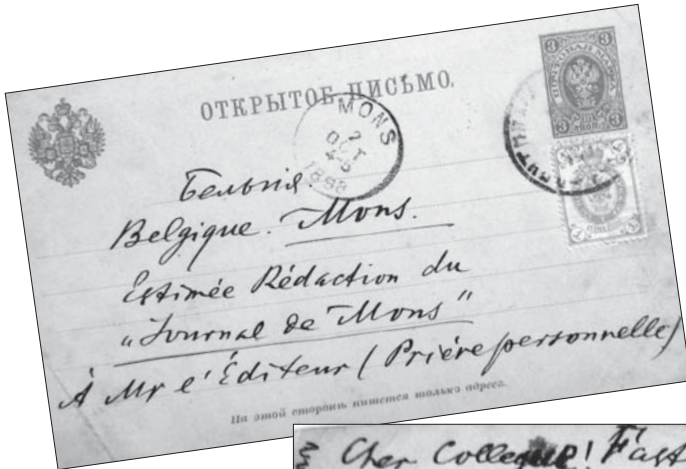 ОТКРЫТОЕ ПИСЬМО.
3 3
ПОЧТОВАЯ МАРКА
3 КОП. 3
MONS
2
OCT
4-5
Бельгія.
Belgique. Mons.
Estimée Rédaction du
„Journal de Mons"
À Mr l'Éditeur (Prière personnelle)
На этой сторонѣ пишется только адресъ.
Cher Collegue!